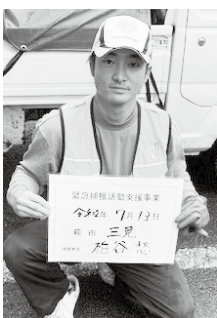 緊急捕獲活動支援事業
令和2年 7月13日
萩市 三見